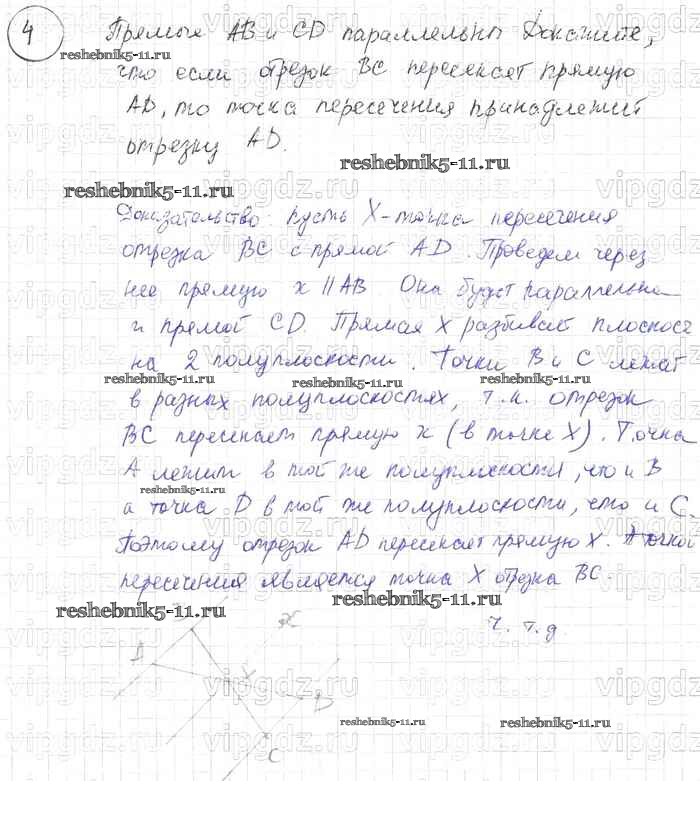 4
Прямые AB и CD параллельны Докажите,
что если отрезок BC пересекает прямую
AD, то точка пересечения принадлежит
отрезку AD.
Доказательство: Пусть X-точка пересечения
отрезка BC с прямой AD. Проведем через
нее прямую x || AB Она будет параллельна
и прямой CD. Прямая X разбивает плоскос
на 2 полуплоскости. Точки B и C лежат
в разных полуплоскостях, т.к. отрезок
BC пересекает прямую x (в точке X). Точка
A лежит в той же полуплоскости, что и B
а точка D в той же полуплоскости, что и C.
Поэтому отрезок AD пересекает прямую X. А точкой
пересечения является точка X отрезка BC.
ч. т. д.
x
A
X
D
C
reshebnik5-11.ru
vipgdz.ru